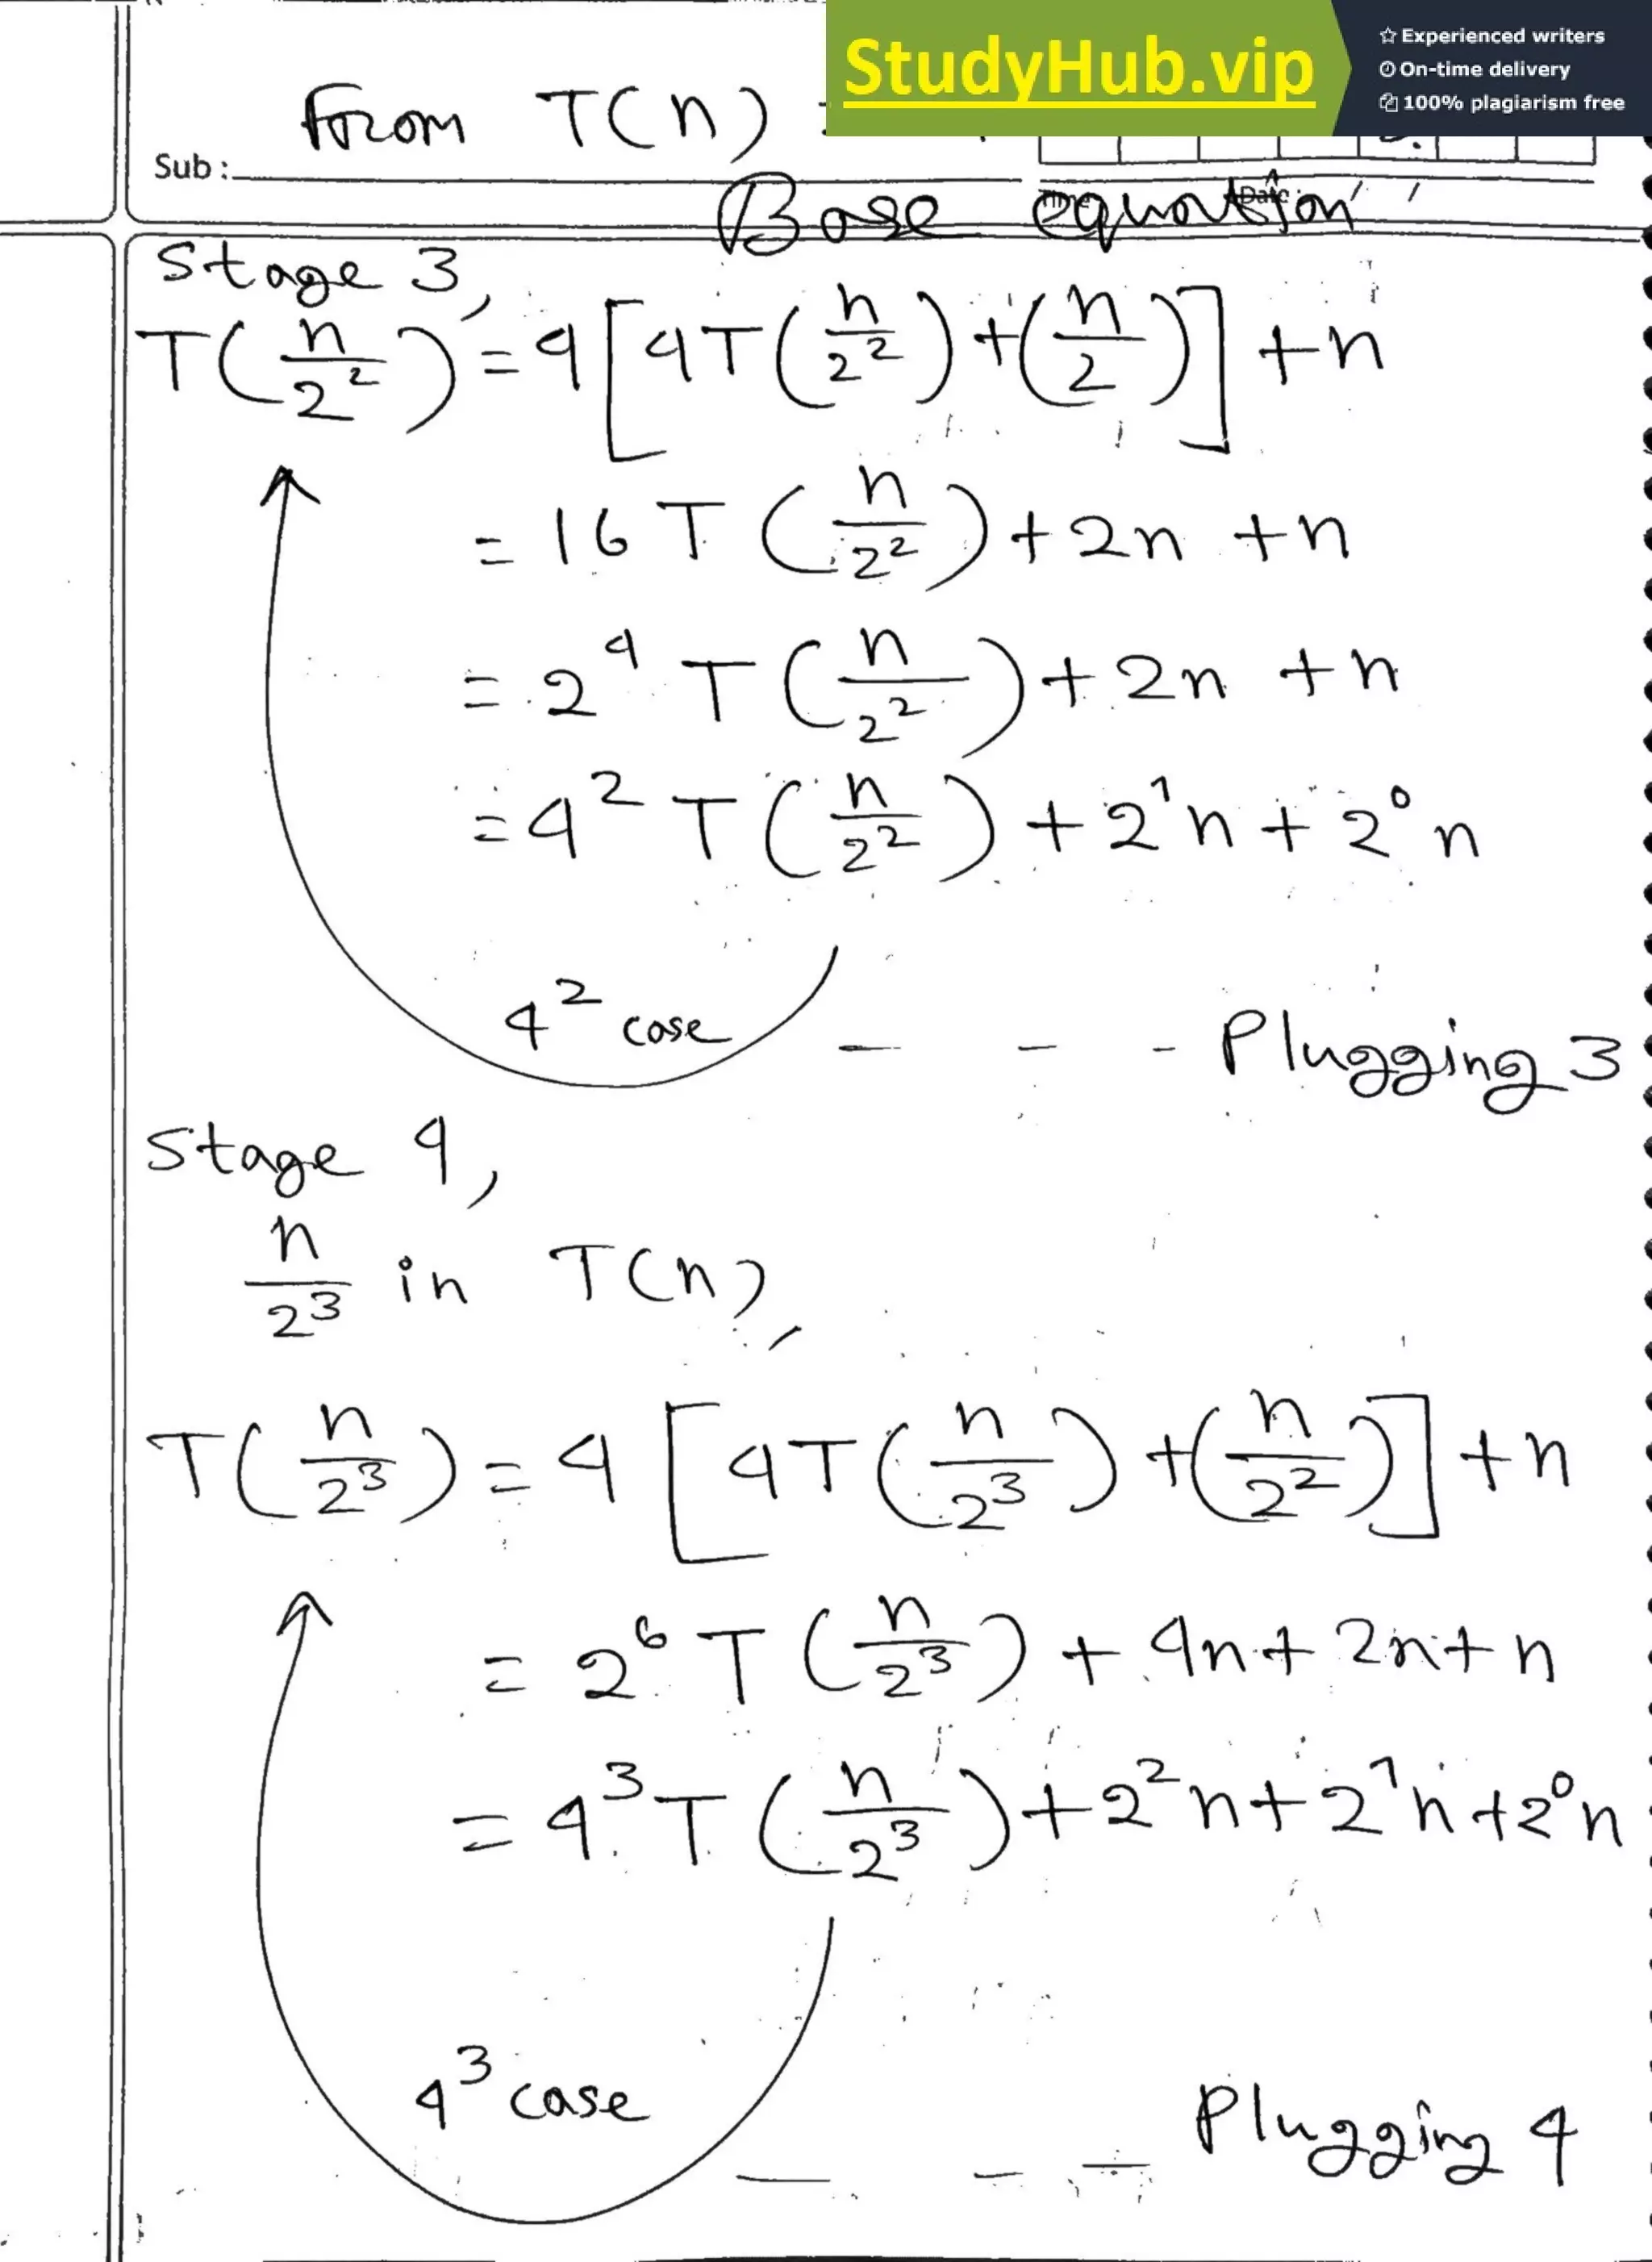 StudyHub.vip
☆ Experienced writers
On-time delivery
100% plagiarism free
From T(n)
Sub :
Base equation
Stage 3,
T(n/2²) = 4[4T(n/2²) + (n/2)] + n
= 16 T(n/2²) + 2n + n
= 2⁴ T(n/2²) + 2n + n
= 4² T(n/2²) + 2¹n + 2⁰n
4² case
— - - Plugging 3
Stage 4,
n/2³ in T(n),
T(n/2³) = 4[4T(n/2³) + (n/2²)] + n
= 2⁶ T(n/2³) + 4n + 2n + n
= 4³ T(n/2³) + 2²n + 2¹n + 2⁰n
4³ case
— - — Plugging 4